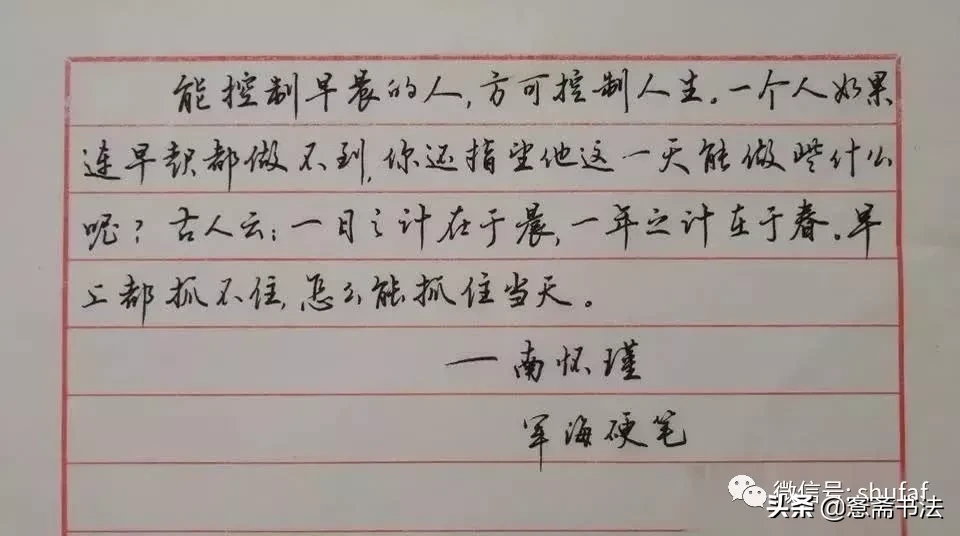 能控制早晨的人,方可控制人生。一个人如果
连早起都做不到,你还指望他这一天能做些什么
呢?古人云:一日之计在于晨,一年之计在于春。早
上都抓不住,怎么能抓住当天。
一南怀瑾
军海硬笔
微信号: shufaf
头条@窓斋书法